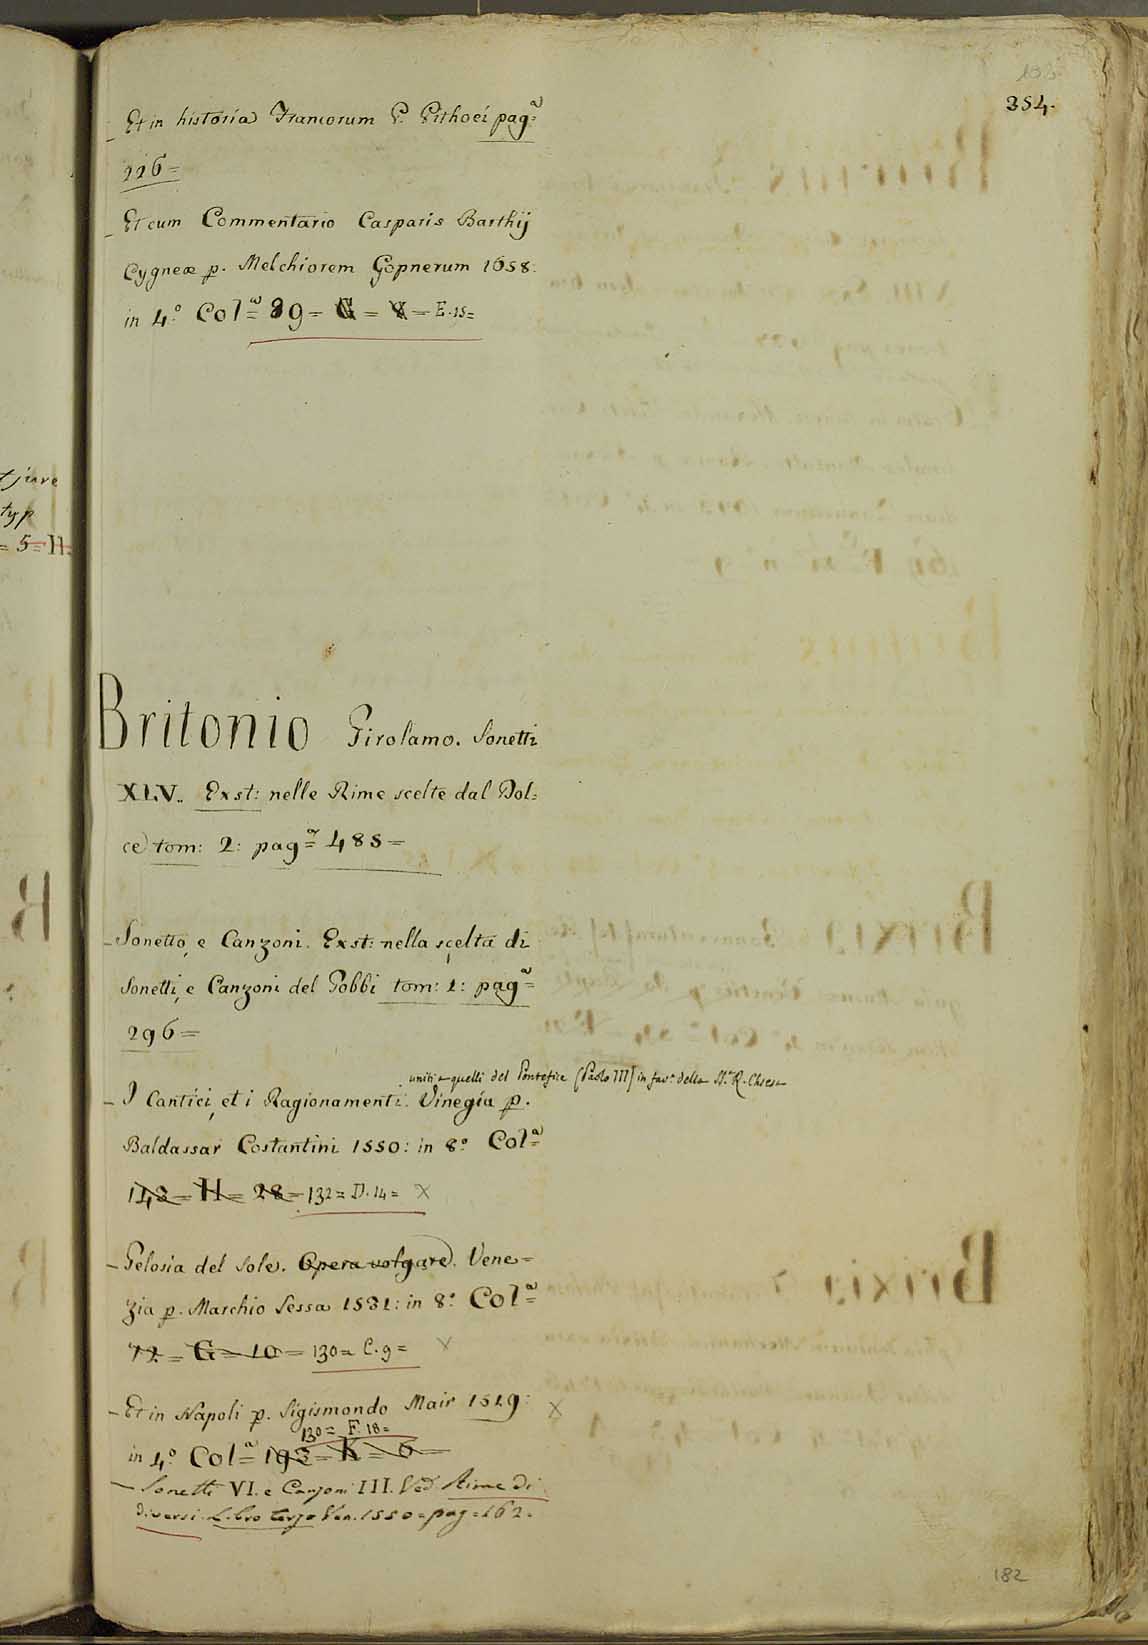 354.
_ Et in historia Francorum P. Pithoei pag.ª
226=
_ Et cum Commentario Casparis Barthij
Cygneæ p. Melchiorem Gopnerum 1658.
in 4.º Col.ª 89 = G = X = E. 15 =
Britonio Girolamo. Sonetti
XLV.. Exst: nelle Rime scelte dal Dol=
ce tom: 2: pag.ª 485=
- Sonetto, e Canzoni. Exst: nella scelta di
Sonetti, e Canzoni del Gobbi tom: 1: pag.ª
296=
uniti a quelli del Pontefice (Paolo III) in fav.e della S.ta R. Chiesa
- I Cantici, et i Ragionamenti. Vinegia p.
Baldassar Costantini 1550: in 8.º Col.ª
143 = H = 28 = 132 = D. 14 = X
- Gelosia del Sole. Opera volgare. Vene=
zia p. Marchio Sessa 1531: in 8.º Col.ª
72 = G = 10 = 130 = C. 9 = X
- Et in Napoli p. Sigismondo Mair 1519: X
130 = F. 18 =
in 4.º Col.ª 193 = K = 6 =
- Sonetti VI. e Canzoni III. Ved. Rime di
diversi Libro terzo Ven. 1550 = pag = 162 =
182
t jure
typ
= 5 = H.